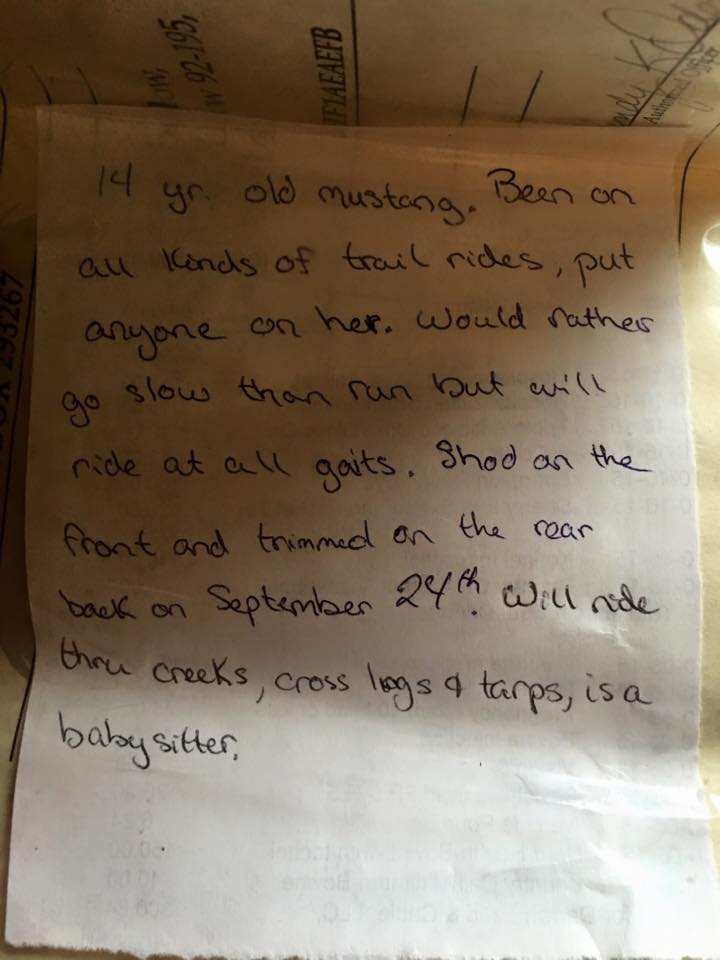 w 92-195,
F1AEAEFB
Authorized Officer
293267
14 yr. old mustang. Been on
all kinds of trail rides, put
anyone on her. Would rather
go slow than run but will
ride at all gaits. Shod on the
front and trimmed on the rear
back on September 24th. Will ride
thru creeks, cross logs & tarps, is a
babysitter.